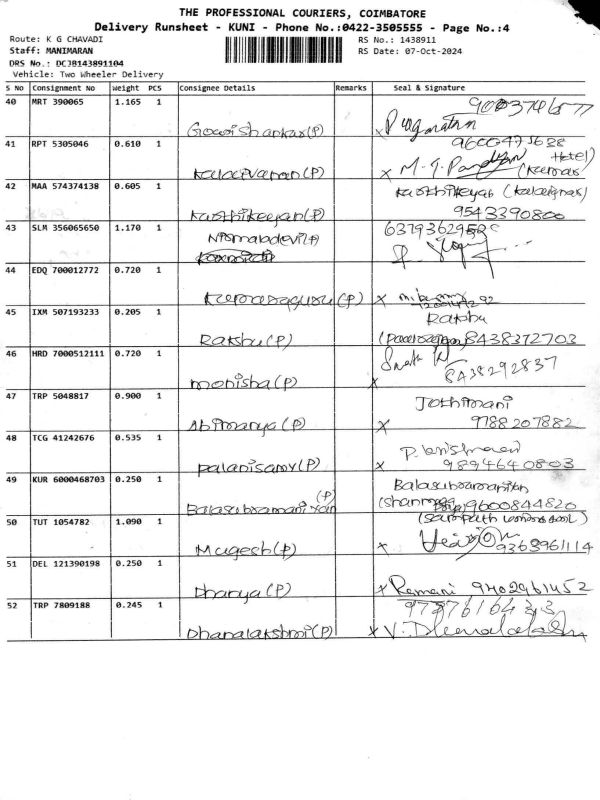 THE PROFESSIONAL COURIERS, COIMBATORE
Delivery Runsheet - KUNI - Phone No.:0422-3505555 - Page No.:4
Route: K G CHAVADI
RS No.: 1438911
Staff: MANIMARAN
RS Date: 07-Oct-2024
DRS No.: DCJB143891104
Vehicle: Two Wheeler Delivery
S No Consignment No Weight PCS Consignee Details Remarks Seal & Signature
40 MRT 390065 1.165 1
Gowri Shankar(P)
41 RPT 5305046 0.610 1
Kalaivanan(P) x M.J. Pandyan
42 MAA 574374138 0.605 1 Karthikeyan
Karthikeyan(P) 9543390800
43 SLM 356065650 1.170 1
Nirmaladevi(P)
44 EDQ 700012772 0.720 1
Kumaraguru(P) x
45 IXM 507193233 0.205 1 Rakshu
Rakshu(P) 8438372703
46 HRD 7000512111 0.720 1
monisha(P) x 8438292837
47 TRP 5048817 0.900 1 Jothimani
Abimanya(P) x 9788207882
48 TCG 41242676 0.535 1
palanisamy(P) x 9894640803
49 KUR 6000468703 0.250 1 Balasubramaniyan
Balasubramaniyan(P) 9600844820
50 TUT 1054782 1.090 1 (Sampath
Mugesh(P) x 9363961114
51 DEL 121390198 0.250 1
Dharya(P) x Ramani 9402961452
52 TRP 7809188 0.245 1
Dhanalakshmi(P) x